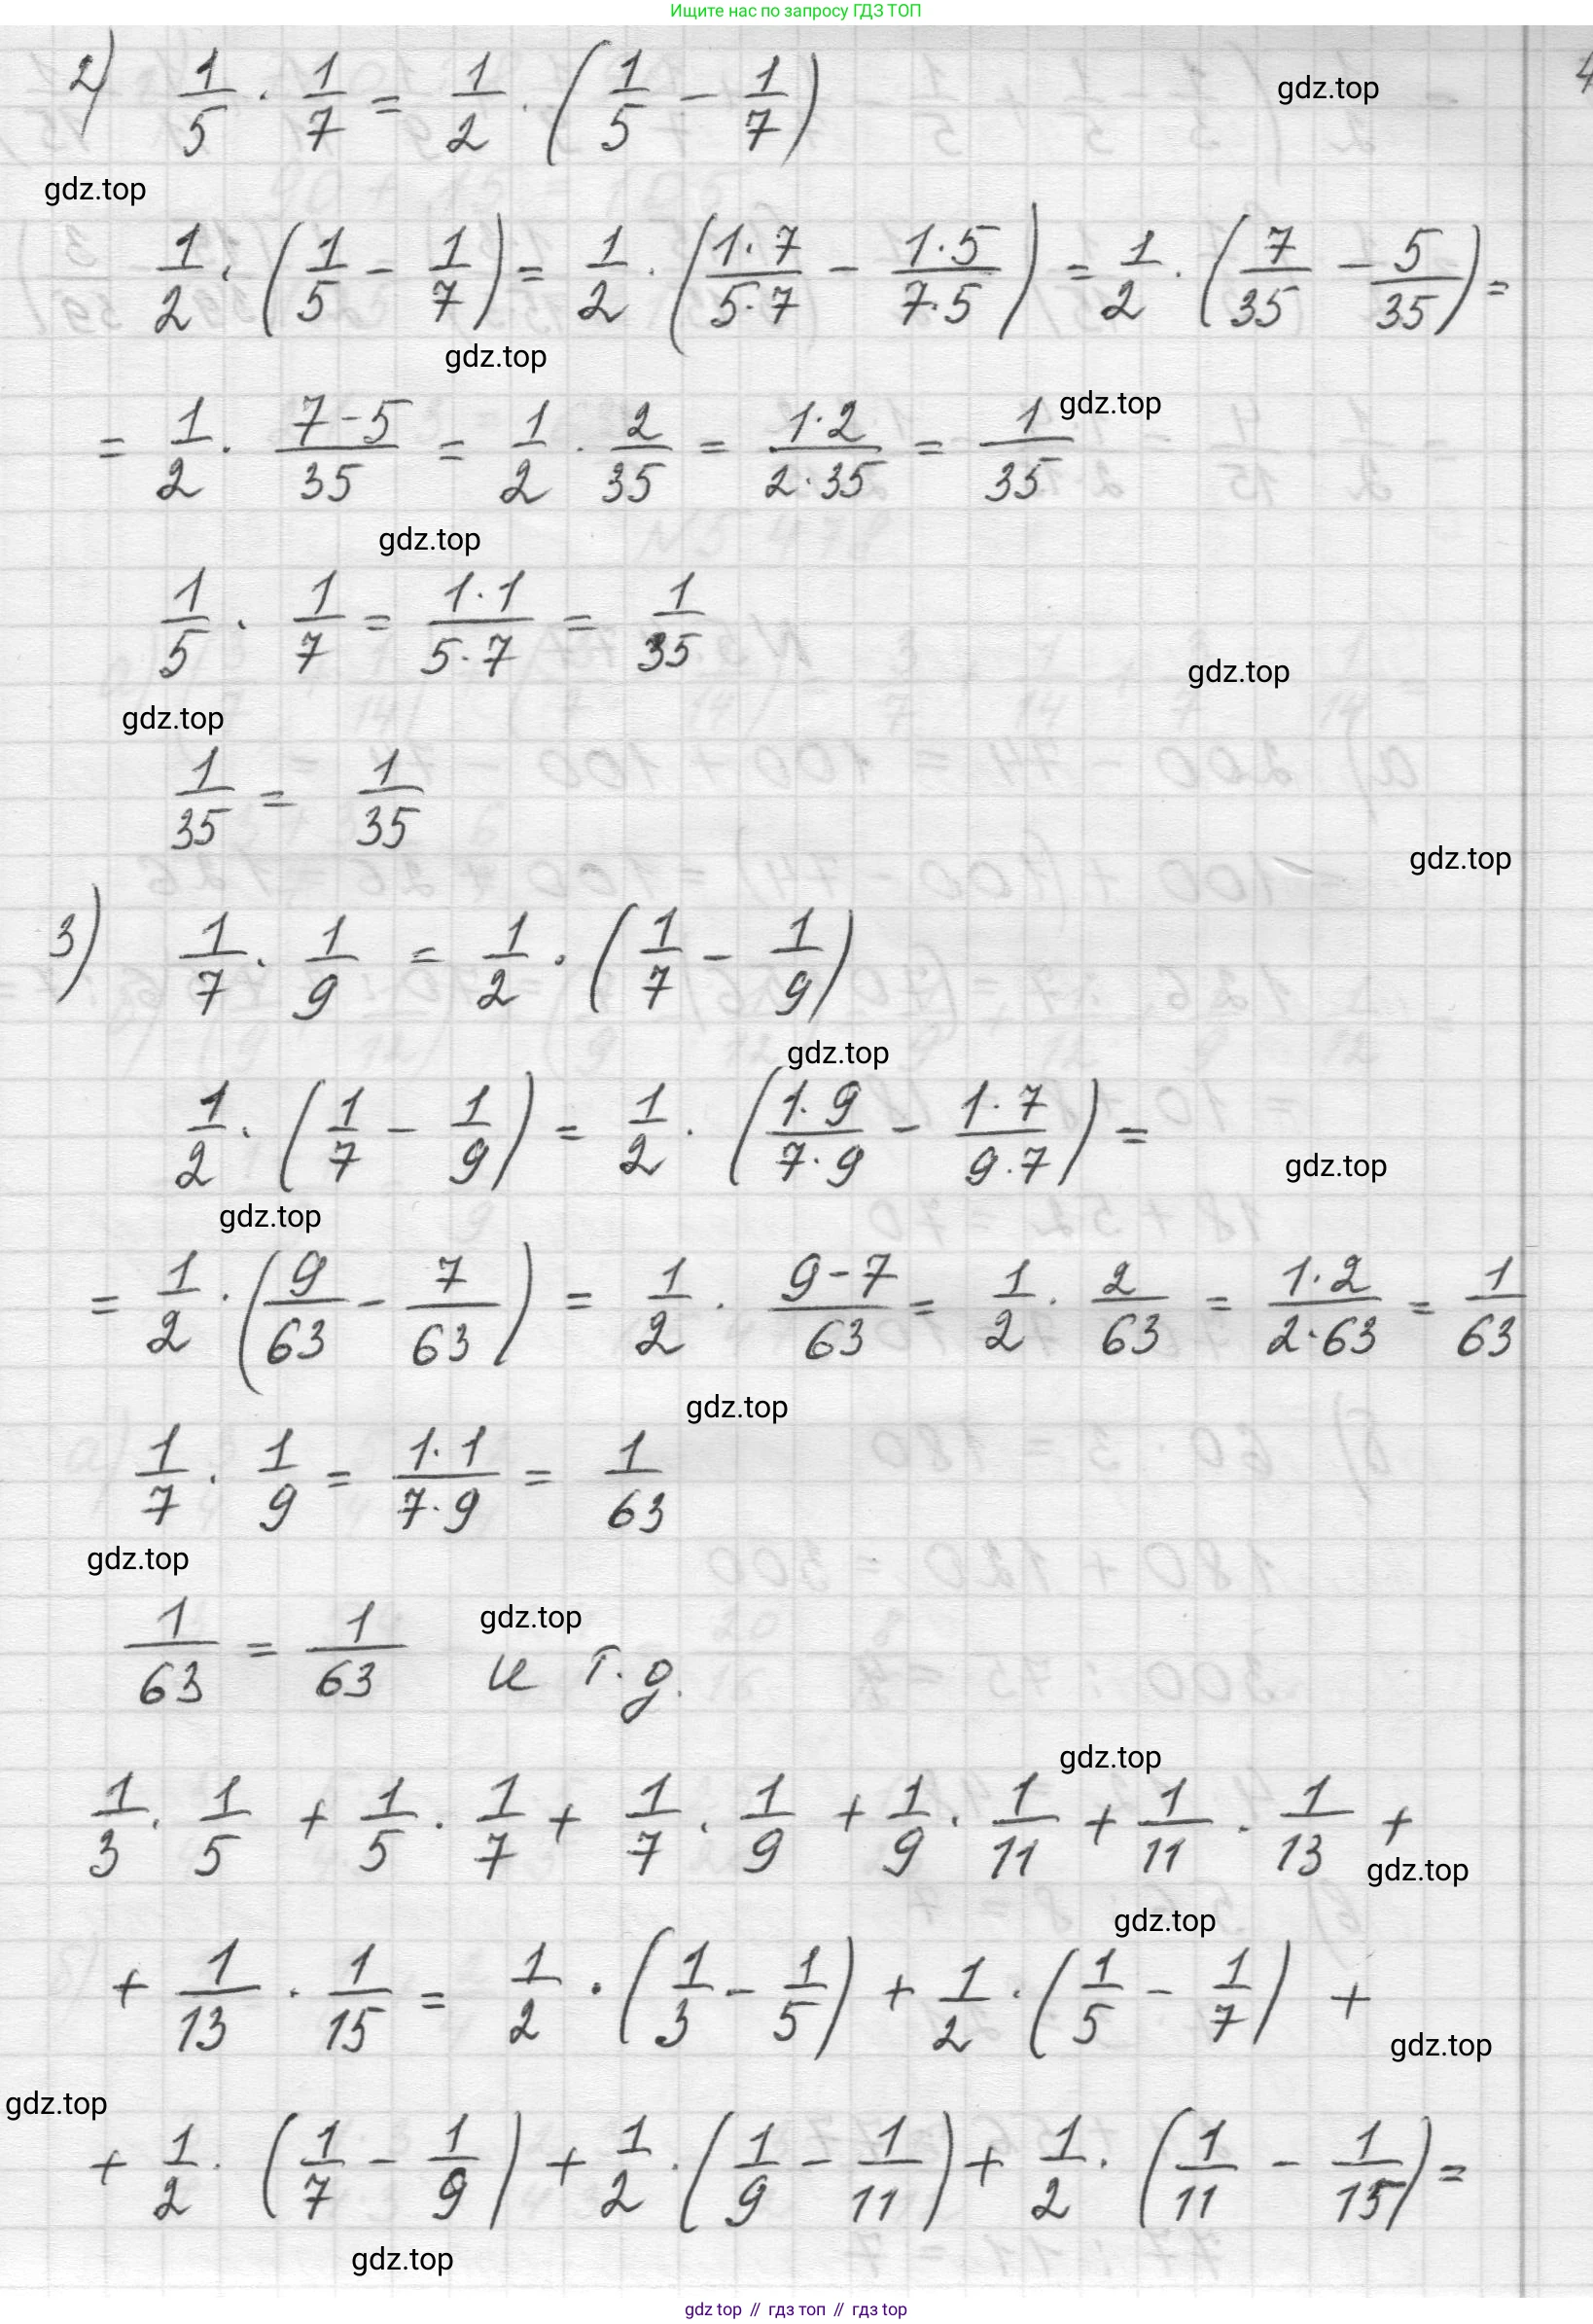 Ищите нас по запросу ГДЗ ТОП
2) 1/5 · 1/7 = 1/2 · (1/5 − 1/7)
gdz.top
gdz.top
1/2 · (1/5 − 1/7) = 1/2 · (1·7/5·7 − 1·5/7·5) = 1/2 · (7/35 − 5/35) =
gdz.top
gdz.top
= 1/2 · 7−5/35 = 1/2 · 2/35 = 1·2/2·35 = 1/35
gdz.top
1/5 · 1/7 = 1·1/5·7 = 1/35
gdz.top
gdz.top
1/35 = 1/35
gdz.top
3) 1/7 · 1/9 = 1/2 · (1/7 − 1/9)
gdz.top
1/2 · (1/7 − 1/9) = 1/2 · (1·9/7·9 − 1·7/9·7) =
gdz.top
gdz.top
= 1/2 · (9/63 − 7/63) = 1/2 · 9−7/63 = 1/2 · 2/63 = 1·2/2·63 = 1/63
gdz.top
1/7 · 1/9 = 1·1/7·9 = 1/63
gdz.top
gdz.top
1/63 = 1/63 и т.д.
gdz.top
1/3 · 1/5 + 1/5 · 1/7 + 1/7 · 1/9 + 1/9 · 1/11 + 1/11 · 1/13 +
gdz.top
gdz.top
+ 1/13 · 1/15 = 1/2 · (1/3 − 1/5) + 1/2 · (1/5 − 1/7) +
gdz.top
gdz.top
+ 1/2 · (1/7 − 1/9) + 1/2 · (1/9 − 1/11) + 1/2 · (1/11 − 1/15) =
gdz.top
gdz top // гдз топ // гдз top